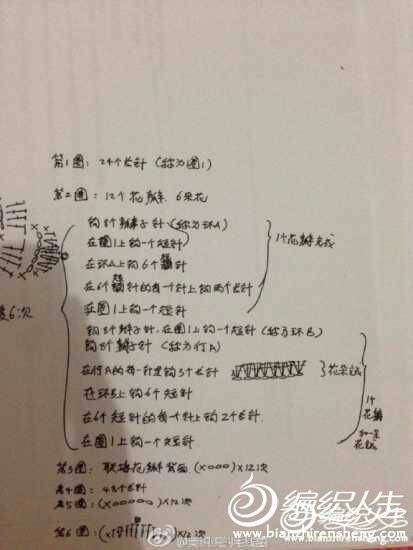 第1圈: 24个长针 (称为圈1)
第2圈: 12个花瓣 6朵花
钩8个辫子针 (称为环A)
在圈1上钩一个短针
1个花瓣完成
在环A上钩6个短针
在6个短针的每一针上钩两个长针
在圈1上钩一个短针
钩8个辫子针,在圈1上钩一个短针 (称为环B)
钩8个辫子针 (称为行A)
在行A的每一针里钩3个长针
在环B上钩6个短针
在6个短针的每一个针上钩2个长针
在圈1上钩一个短针
1个花瓣
第3圈: 联接花瓣背面 (x000)x12次
第4圈: 48个长针
第5圈: (x0000)x12次
第6圈: x12次
复6次
编织人生
www.bianzhirensheng.com